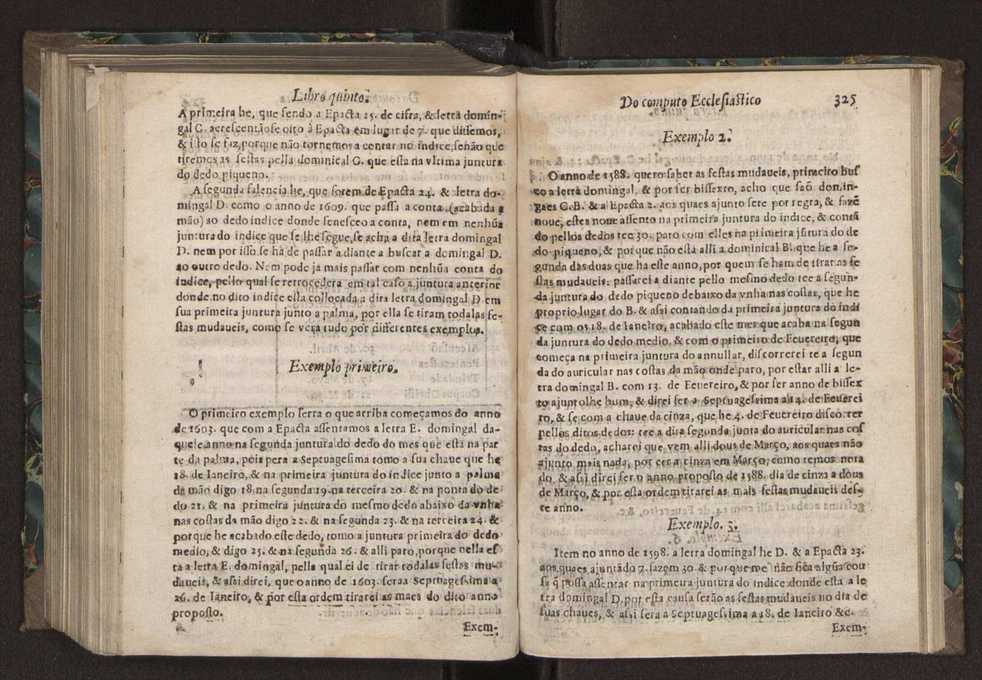 Libro quinto.
A primeira he, que sendo a Epacta 25. de cifra, & letra domin-
gal C. acrescentãose oito à Epacta em lugar de 7. que dissemos,
& isso se faz, porque não tornemos a contar no indice, senão que
tiremos as festas pella dominical G. que esta na vltima juntura
do dedo piqueno.
A segunda falencia he, que sorem de Epacta 24. & letra do-
mingal D. como o anno de 1609. que passa a conta (acabada a
mão) ao dedo indice donde feneseeo a conta, nem em nenhũa
juntura do indice que se lhe segue, se acha a dita letra domingal
D. nem por isso se hà de passar a diante a buscar a domingal D.
ao outro dedo. Nem pode ja mais passar com nenhũa conta do
indice, pello qual se retrocedera em tal caso a juntura anterior
donde no dito indice esta collocada a dita letra domingal D em
sua primeira juntura junto a palma, por ella se tiram todalas fe-
stas mudaueis, como se vera tudo por differentes exemplos.
Exemplo primeiro.
O primeiro exemplo serra o que arriba começamos do anno
de 1603. que com a Epacta assentamos a letra E. domingal da-
quele anno na segunda juntura do dedo do mes que està na par
te da palma, pois pera a Septuagesima tomo a sua chaue que he
18. de Ianeiro, & na primeira juntura do indice junto a palma
da mão digo 18. na segunda 19. na terceira 20. & na ponta do de
do 21. & na primeira juntura do mesmo dedo abaixo da vnha
nas costas da mão digo 22. & na segunda 23. & na terceira 24. &
porque he acabado este dedo, tomo a juntura primeira do dedo
medio, & digo 25. & na segunda 26. & alli paro, porque nella es
ta a letra E. domingal, pella qual ei de tirar todalas festas mu-
daueis, & assi direi, que o anno de 1603. seraa Septuagesima a
26. de Ianeiro, & por esta ordem tirarei as maes do dito anno
proposto.
Exem-
Do computo Ecclesiastico 325
Exemplo 2.
O anno de 1588. quero saber as festas mudaueis, primeiro bus
co a letra domingal, & por ser bissexto, acho que saõ domin-
gaes C.B. & a Epacta 2. aos quaes ajunto sete por regra, & fazẽ
noue, estes noue assento na primeira juntura do indice, & contã
do pellos dedos tee 30. paro com elles na primeira jũtura do de
do piqueno, & porque não està alli a dominical B. que he a se-
gunda das duas que ha este anno, por quem se ham de tirar as fe
stas mudaueis: passarei a diante pello mesmo dedo tee a segun-
da juntura do dedo piqueno debaixo da vnha nas costas, que he
proprio lugar do B. & assi contando da primeira juntura do indi
ce com os 18. de Ianeiro, acabado este mes que acaba na segun
da juntura do dedo medio. & com o primeiro de Feuereiro, que
começa na primeira juntura do annullar, discorrerei te a segun
da do auricular nas costas da mão onde paro, por estar alli a le-
tra domingal B. com 13. de Feuereiro, & por ser anno de bissex
to ajunto lhe hum, & direi ser a Septuagesima aa 14. de Feuerei
ro, & se com a chaue da cinza, que he 4. de Feuereiro discorrer
pellos ditos dedos tee a dita segonda junta do auricular nas cos
tas do dedo, acharei que vem alli dous de Março, aos quaes não
ajunto mais nada, por ser a cinza em Março, como temos nota
do, & assi direi ser o anno proposto de 1588. dia de cinza a dous
de Março, & por esta ordem titarei as mais festas mudaueis des-
te anno.
Exemplo. 3.
Item no anno de 1598. a letra domingal he D. & a Epacta 23.
aos quaes ajuntãdo 7. fazem 30. & porque me não fica algũa cou
sa q̃ possa assentar na primeira juntura do indice donde esta a le
tra domingal D. por esta causa serão as festas mudaueis no dia de
suas chaues, & assi sera a Septuagesima a 18. de Ianeiro &c.
Exem-